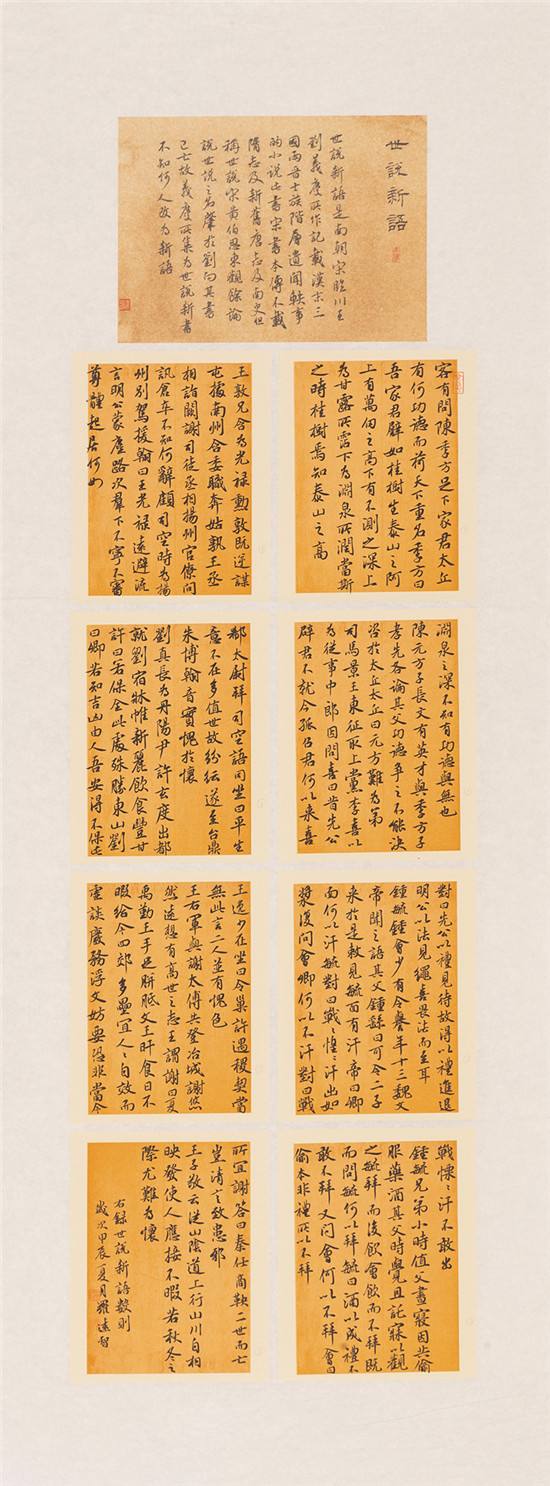 世說新語
世說新語是南朝宋臨川王
劉義慶所作記載漢末三
國兩晉士族階層遺聞軼事
的小說此書宋書本傳不載
隋志及新舊唐志及南史但
稱世說宋黃伯思東觀餘論
說世說之名肇於劉向其書
已亡故義慶所集為世說新書
不知何人改為新語
客有問陳季方足下家君太丘
有何功德而荷天下重名季方曰
吾家君譬如桂樹生泰山之阿
上有萬仞之高下有不測之深上
為甘露所霑下為淵泉所潤當斯
之時桂樹焉知泰山之高
淵泉之深不知有功德與無也
陳元方子長文有英才與季方子
孝先各論其父功德爭之不能決
咨於太丘太丘曰元方難為弟
司馬景王東征取上黨李喜以
為從事中郎因問喜曰昔先公
辟君不就今孤召君何以來喜
對曰先公以禮見待故得以禮進退
明公以法見繩喜畏法而至耳
鍾毓鍾會少有令譽年十三魏文
帝聞之語其父鍾繇曰可令二子
來於是敕見毓面有汗帝曰卿
面何以汗毓對曰戰戰惶惶汗出如
漿復問會卿何以不汗對曰戰
戰慄慄汗不敢出
鍾毓兄弟小時值父晝寢因共偷
服藥酒其父時覺且託寐以觀
之毓拜而後飲會飲而不拜既
而問毓何以拜毓曰酒以成禮不
敢不拜又問會何以不拜會曰
偷本非禮所以不拜
王敦兄含為光祿勳敦既逆謀
屯據南州含委職奔姑孰王丞
相詣闕謝司徒丞相揚州官僚問
訊倉卒不知何辭顧司空時為揚
州別駕援翰曰王光祿遠避流
言明公蒙塵路次群下不寧不審
尊體起居何如
郗太尉拜司空語同坐曰平生
意不在多值世故紛紜遂至台鼎
朱博翰音實愧於懷
劉真長為丹陽尹許玄度出都
就劉宿牀帷新麗飲食豐甘
許曰若保全此處殊勝東山劉
曰卿若知吉凶由人吾安得不保此
王逸少在坐曰令巢許遇稷契當
無此言二人並有愧色
王右軍與謝太傅共登冶城謝悠
然遠想有高世之志王謂謝曰夏
禹勤王手足胼胝文王旰食日不
暇給今四郊多壘宜人人自效而
虛談廢務浮文妨要恐非當今
所宜謝答曰秦任商鞅二世而亡
豈清言致患邪
王子敬云從山陰道上行山川自相
映發使人應接不暇若秋冬之
際尤難為懷
右錄世說新語數則
歲次甲辰夏月羅遠智